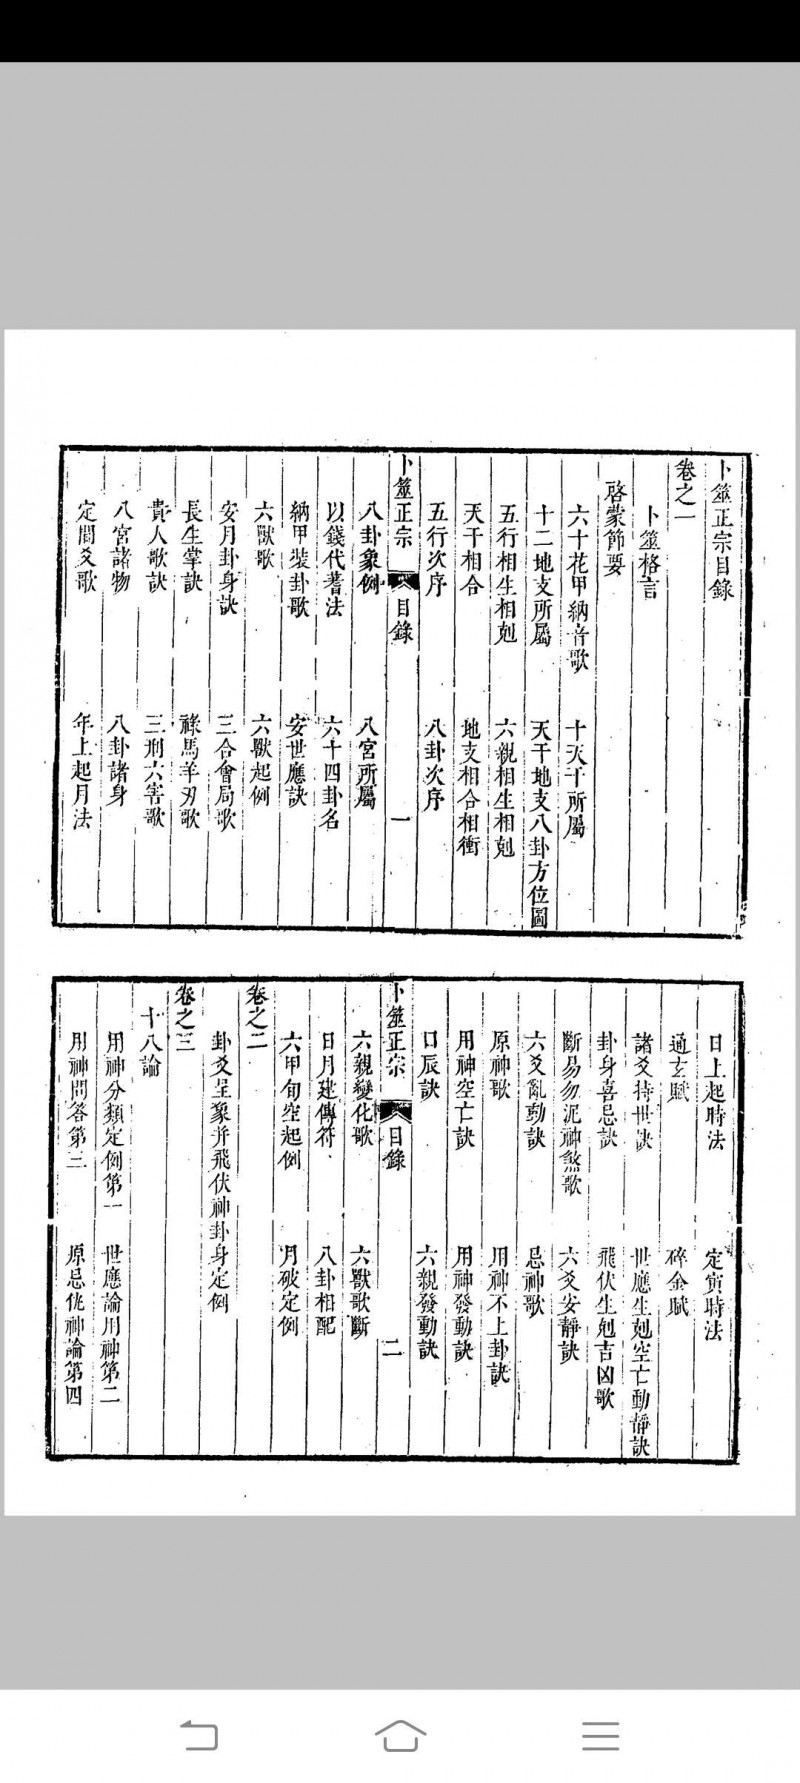 卜筮正宗目錄
卷之一
卜筮格言
啓蒙節要
六十花甲納音歌 十天干所屬
十二地支所屬 天干地支八卦方位圖
五行相生相剋 六親相生相剋
天干相合 地支相合相衝
五行次序 八卦次序
卜筮正宗 目錄 一
八卦象例 八宮所屬
以錢代蓍法 六十四卦名
納甲裝卦歌 安世應訣
六獸歌 六獸起例
安月卦身訣 三合會局歌
長生掌訣 祿馬羊刃歌
貴人歌訣 三刑六害歌
八宮諸物 八卦諸身
定間爻歌 年上起月法
日上起時法 定寅時法
通玄賦 碎金賦
諸爻持世訣 世應生剋空亡動靜訣
卦身喜忌訣 飛伏生剋吉凶歌
斷易勿泥神煞歌 六爻安靜訣
六爻亂動訣 忌神歌
原神歌 用神不上卦訣
用神空亡訣 用神發動訣
日辰訣 六親發動訣
卜筮正宗 目錄 二
六親變化歌 六獸歌斷
日月建傳符 八卦相配
六甲旬空起例 月破定例
卷之二
卦爻呈象并飛伏神卦身定例
卷之三
十八論
用神分類定例第一 世應論用神第二
用神問答第三 原忌仇神論第四